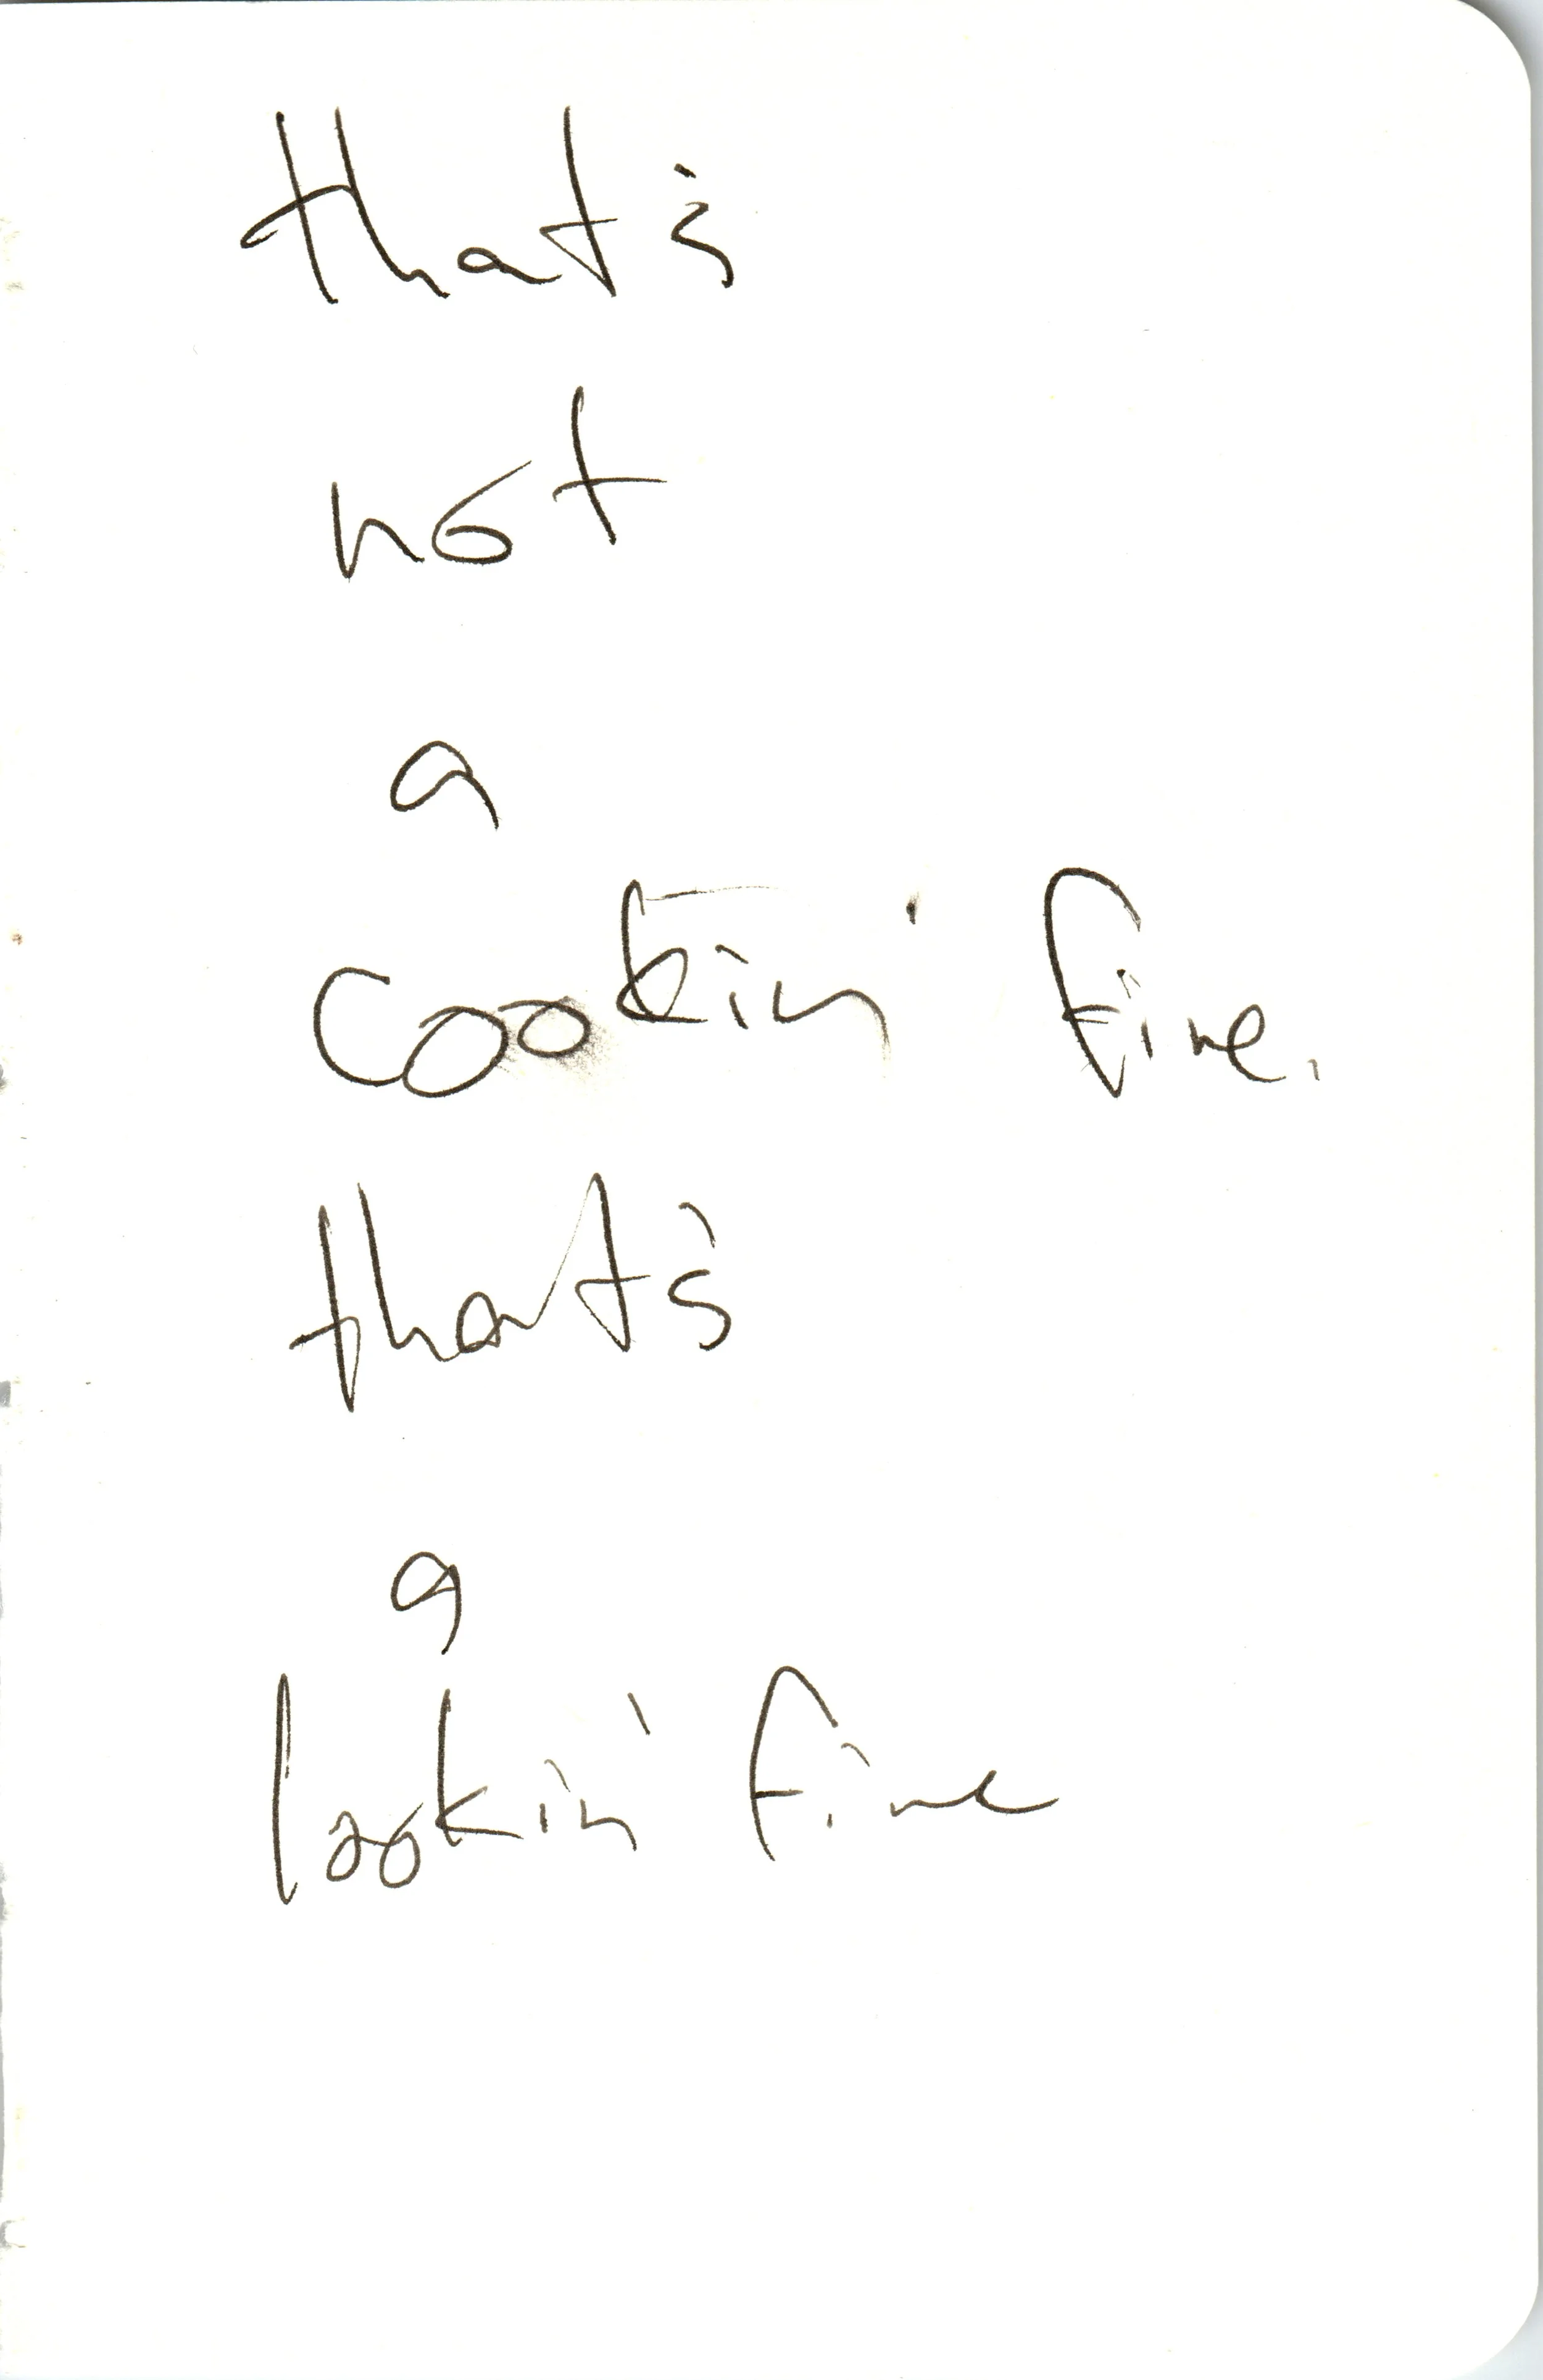 that's
not
a
cookin' fine.
that's
a
lookin' fine